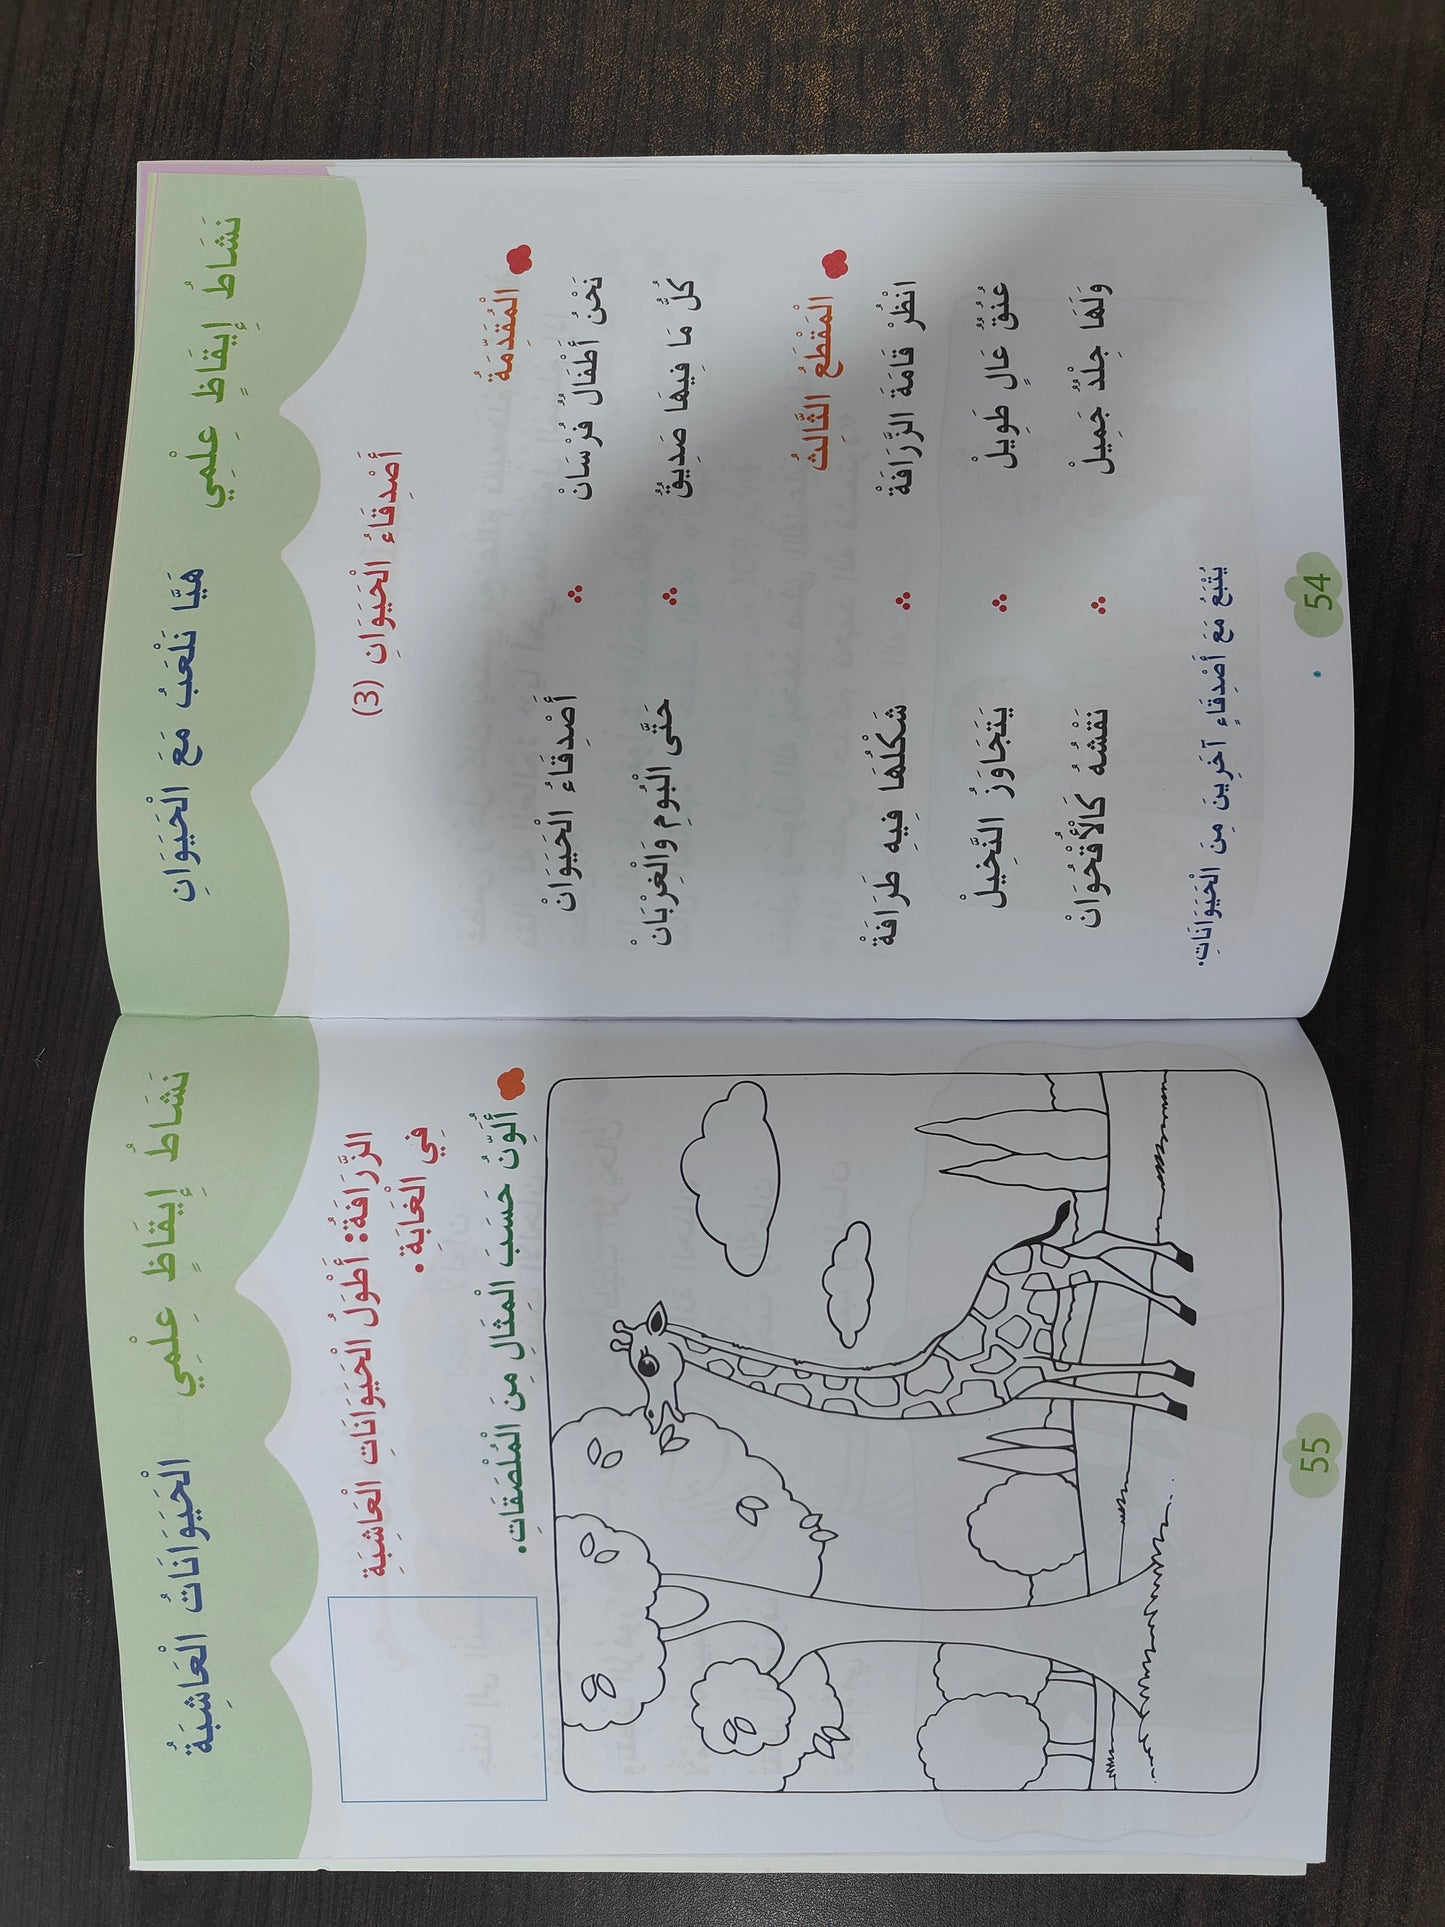 نَشَاطُ إِيقَاظٍ عِلْمِي
هَيَّا نَلْعَبُ مَعَ الْحَيَوَانِ
أَصْدِقَاءُ الْحَيَوَانِ (3)
الْمُقَدِّمَةُ
نَحْنُ أَطْفَالٌ فُرْسَانْ ∴ أَصْدِقَاءُ الْحَيَوَانْ
كُلُّ مَا فِيهَا صَدِيقٌ ∴ حَتَّى الْبُومِ وَالْغِرْبَانْ
الْمَقْطَعُ الثَّالِثُ
انْظُرْ قَامَةَ الزَّرَافَةْ ∴ شَكْلُهَا فِيهِ طَرَافَةْ
عُنُقٌ عَالٍ طَوِيلْ ∴ يَتَجَاوَزُ النَّخِيلْ
وَلَهَا جِلْدٌ جَمِيلْ ∴ نَقْشُهُ كَالْأُقْحُوَانْ
يُتْبَعُ مَعَ أَصْدِقَاءٍ آخَرِينَ مِنَ الْحَيَوَانَاتِ.
54
نَشَاطُ إِيقَاظٍ عِلْمِي
الْحَيَوَانَاتُ الْعَاشِبَةُ
الزَّرَافَةُ: أَطْوَلُ الْحَيَوَانَاتِ الْعَاشِبَةِ
فِي الْغَابَةِ.
أُلَوِّنُ حَسَبَ الْمِثَالِ مِنَ الْمُلْصَقَاتِ.
55